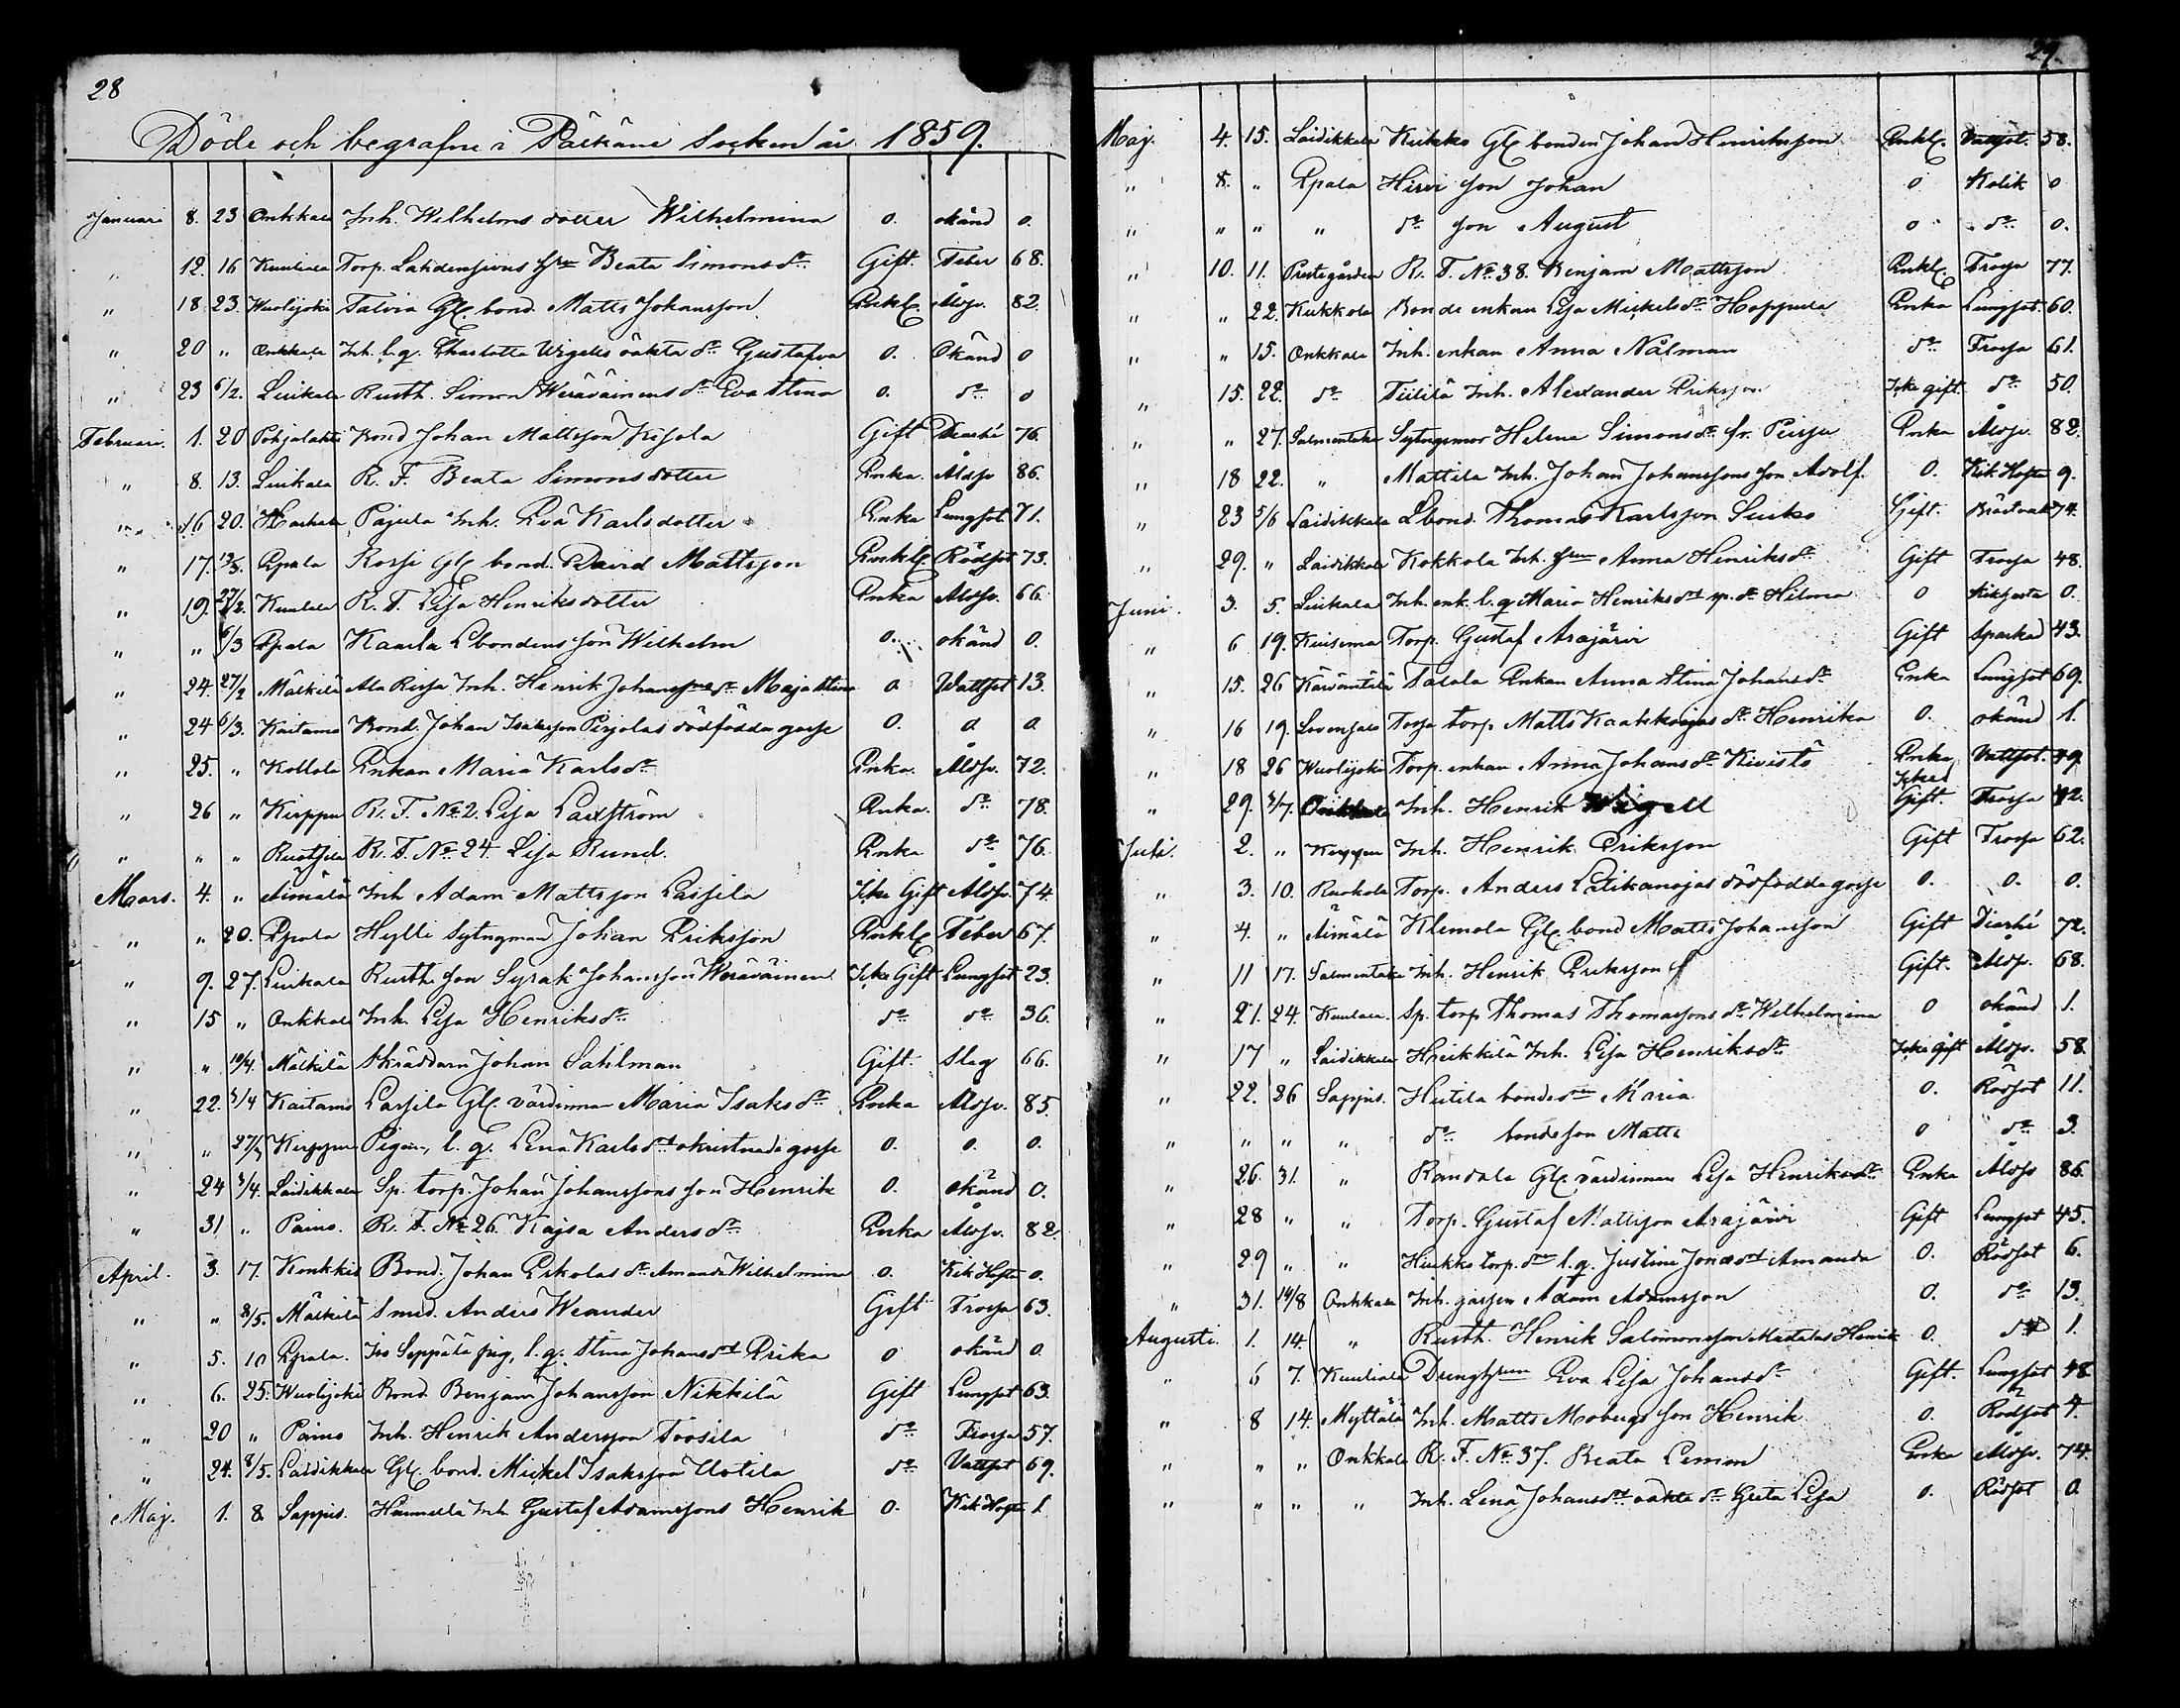 28
Döde och begrafne i Pälkäne Socken år 1859.
Januari 8. 23 Onkkala Inh. Wilhelms dotter Wilhelmina 0. okänd 0.
" 12. 16 Kuuliala Torp. Lahdensivus hru Beata Simonsdr Gift. Feber 68.
" 18 23. Wuolijoki Talvia Gl. bond. Matts Johansson Enkl. Åldr. 82.
" 20 " Onkkala Inh. l. q. Charlotta Wigelis oäkta dr Gustafva 0. Okänd 0
" 23 6/2. Luikala Rusth. Simon Weräväinens dr Eva Stina 0. do 0
Februari. 1. 20 Pohjalahti Bond Johan Mattsson Gift Diarhé 76.
" 8. 13. Luikala R. F. Beata Simonsdotter Enka. Åldr 86.
" 16 20. Pajula Inh. Eva Karlsdotter Enka Lungsot 71.
" 17. 13/3. Epala Rossi Gl. bond. David Mattsson Enkl. Rödsot 73.
" 19. 27/2. Kuulala R. F. Lisa Henriksdotter Enka Åldr. 66
" " 6/3 Epala Kaarla Lbondens son Wilhelm 0. okänd 0.
" 24. 27/2 Mälkilä Ala Rissa Inh. Henrik Johanssons dr Maja Stina 0 Wattsot 13.
" 24 6/3. Kaitamo Bond. Johan Isaksson Pirjolas dödfödda gosse 0. 0 0.
" 25. " Kollola Enkan Maria Karlsdr Enka. Åldr. 72.
" 26 " Kirppu R. F. No 2. Lisa Laxström Enka. do 78.
" " " R. F. No 24. Lisa Rund. Enka do 76.
Mars. 4. " Äimälä Inh Adam Mattsson Lassila Icke Gift Åldr. 74.
" " 20. Epala Hylli Sytngman Johan Eriksson Enkl Feber 67.
" 9. 27. Luikala Rusth. son Syrak Johansson Weräväinen Icke Gift Lungsot 23.
" 15 " Onkkala Inh. Lisa Henriksdr do do 36.
" " 10/4. Mälkilä Skräddarn Johan Sahlman Gift. Slag 66.
" 22. 3/4 Kaitamo Lassila Gl. värdinnan Maria Isaksdr Enka Åldr. 85.
" " 27/3 Kirppu Pigan, l. q. Lena Karlsdr okristnade gosse 0. 0. 0.
" 24 3/4. Laidikkala Sp. torp. Johan Johanssons son Henrik 0. okänd 0.
" 31 " Paino. R. F. No 26. Kajsa Andersdr Enka Åldr. 82.
April. 3. 17. Kankkis Bond. Johan Eskolas dr Amanda Wilhelmina 0. Kik Hosta 0.
" " 8/5. Mälkilä Smed. Anders Weander Gift Frossa 63.
" 5. 10 Epala. Iso Seppälä pig, l. q. Stina Johansdr Erika 0 okänd 0
" 6. 25. Wuolijoki Bond. Benjam Johansson Nikkilä Gift Lungsot 63.
" 20 " Paino Inh. Henrik Andersson Toosila do Frossa 57.
" 24. 8/5. Laidikkala Gl. bond. Mickel Isaksson Uotila do Vattsot 69.
Maj. 1. 8 Sappis. Hannula Inh Gustaf Adamssons Henrik 0. Kik Hosta 1.
29.
Maj. 4. 15. Laidikkala Kukko Gl bonden Johan Henriksson Enkl. Vattsot. 58.
" 8. " Epala Hirvi son Johan 0 Kolik 0
" " " " do son August 0 do 0.
" 10. 11. Prestgården R. F. No 38. Benjam Mattsson Enkl. Frossa 77.
" " 22. Kukkola Bonde enkan Lisa Mickelsdr Hoppula Enka Lungsot. 60.
" " 15. Onkkala Inh. enkan Anna Nålman do Frossa 61.
" 15. 22. do Tiitilä Inh. Alexander Eriksson Icke gift. do 50.
" " 27. Salmentaka Sytngsmor Helena Simonsdr fr. Enka Åldr. 82.
" 18 22. " Mattila Inh. Johan Johanssons son Adolf. 0. Kik Hosta 9.
" 23 5/6 Laidikkala Lbond. Thomas Karlsson Suiko Gift. 74.
" 29. " Laidikkala Kokkola Inh. hru Anna Henriksdr Gift Frossa 48.
Juni. 3. 5. Luikala Inh. enk. l. q Maria Henriksdr sp. dr Hilma 0 Kikhosta 0.
" 6 19. Kuisema Torp. Gustaf Arajärvi Gift Sparkad 43.
" 15. 26 Kärsämtilä Talala Enkan Anna Stina Johansdr Enka Lungsot 69.
" 16 19. torp. Matts dr Henrika 0. okänd 1.
" 18 26 Wuolijoki Torp. enkan Anna Johansdr Kivistö Enka Vattsot. 49.
" 29. 3/7. Onkkala Inh. Henrik Wigell Icke Gift. Frossa 42.
Juli. 2. " Kirppu Inh. Henrik Eriksson Gift Frossa 62.
" 3. 10. Ruokola Torp. Anders Lätikanojas dödfödda gosse 0. 0. 0.
" 4. " Äimälä Klemola Gl. bond Matts Johansson Gift Diarhé 72.
" 11 17. Salmentaka Inh. Henrik Eriksson Gift. Åldr. 68.
" 21. 24. Kuulala. Sp. torp Thomas Thomassons dr Wilhelmina 0 okänd 1.
" 17 " Laidikkala Heikkilä Inh. Lisa Henriksdr Icke Gift Åldr. 58.
" 22. 26 Sappis. Hutila bondedr Maria 0. Rödsot 11.
" " " " do bondeson Matts 0 do 3.
" 26. 31. " Randala Gl. värdinnan Lisa Henriksdr Enka Åldr 86.
" 28 " " Torp. Gustaf Mattsson Arajärvi Gift Lungsot 45.
" 29 " " Hukko torp. dr l. q. Justina Jonasdr Amanda 0. Rödsot 6.
" 31. 14/8 Onkkala Inh. gossen Adam Adamsson 0. do 13.
Augusti. 1. 14. " Rusth. Henrik Salomonsson Henrik 0. do 1.
" 6 7. Kuuliala Drenghrun Eva Lisa Johansdr Gift. Lungsot 48
" 8 14. Myttälä Inh. Matts Mobergs son Henrik 0. Rödsot 4.
" " " Onkkala R. F. No 37. Beata Lemon Enka Åldr. 74.
" " " " Inh. Lena Johansdr oäkta dr Greta Lisa 0. Rödsot 0.